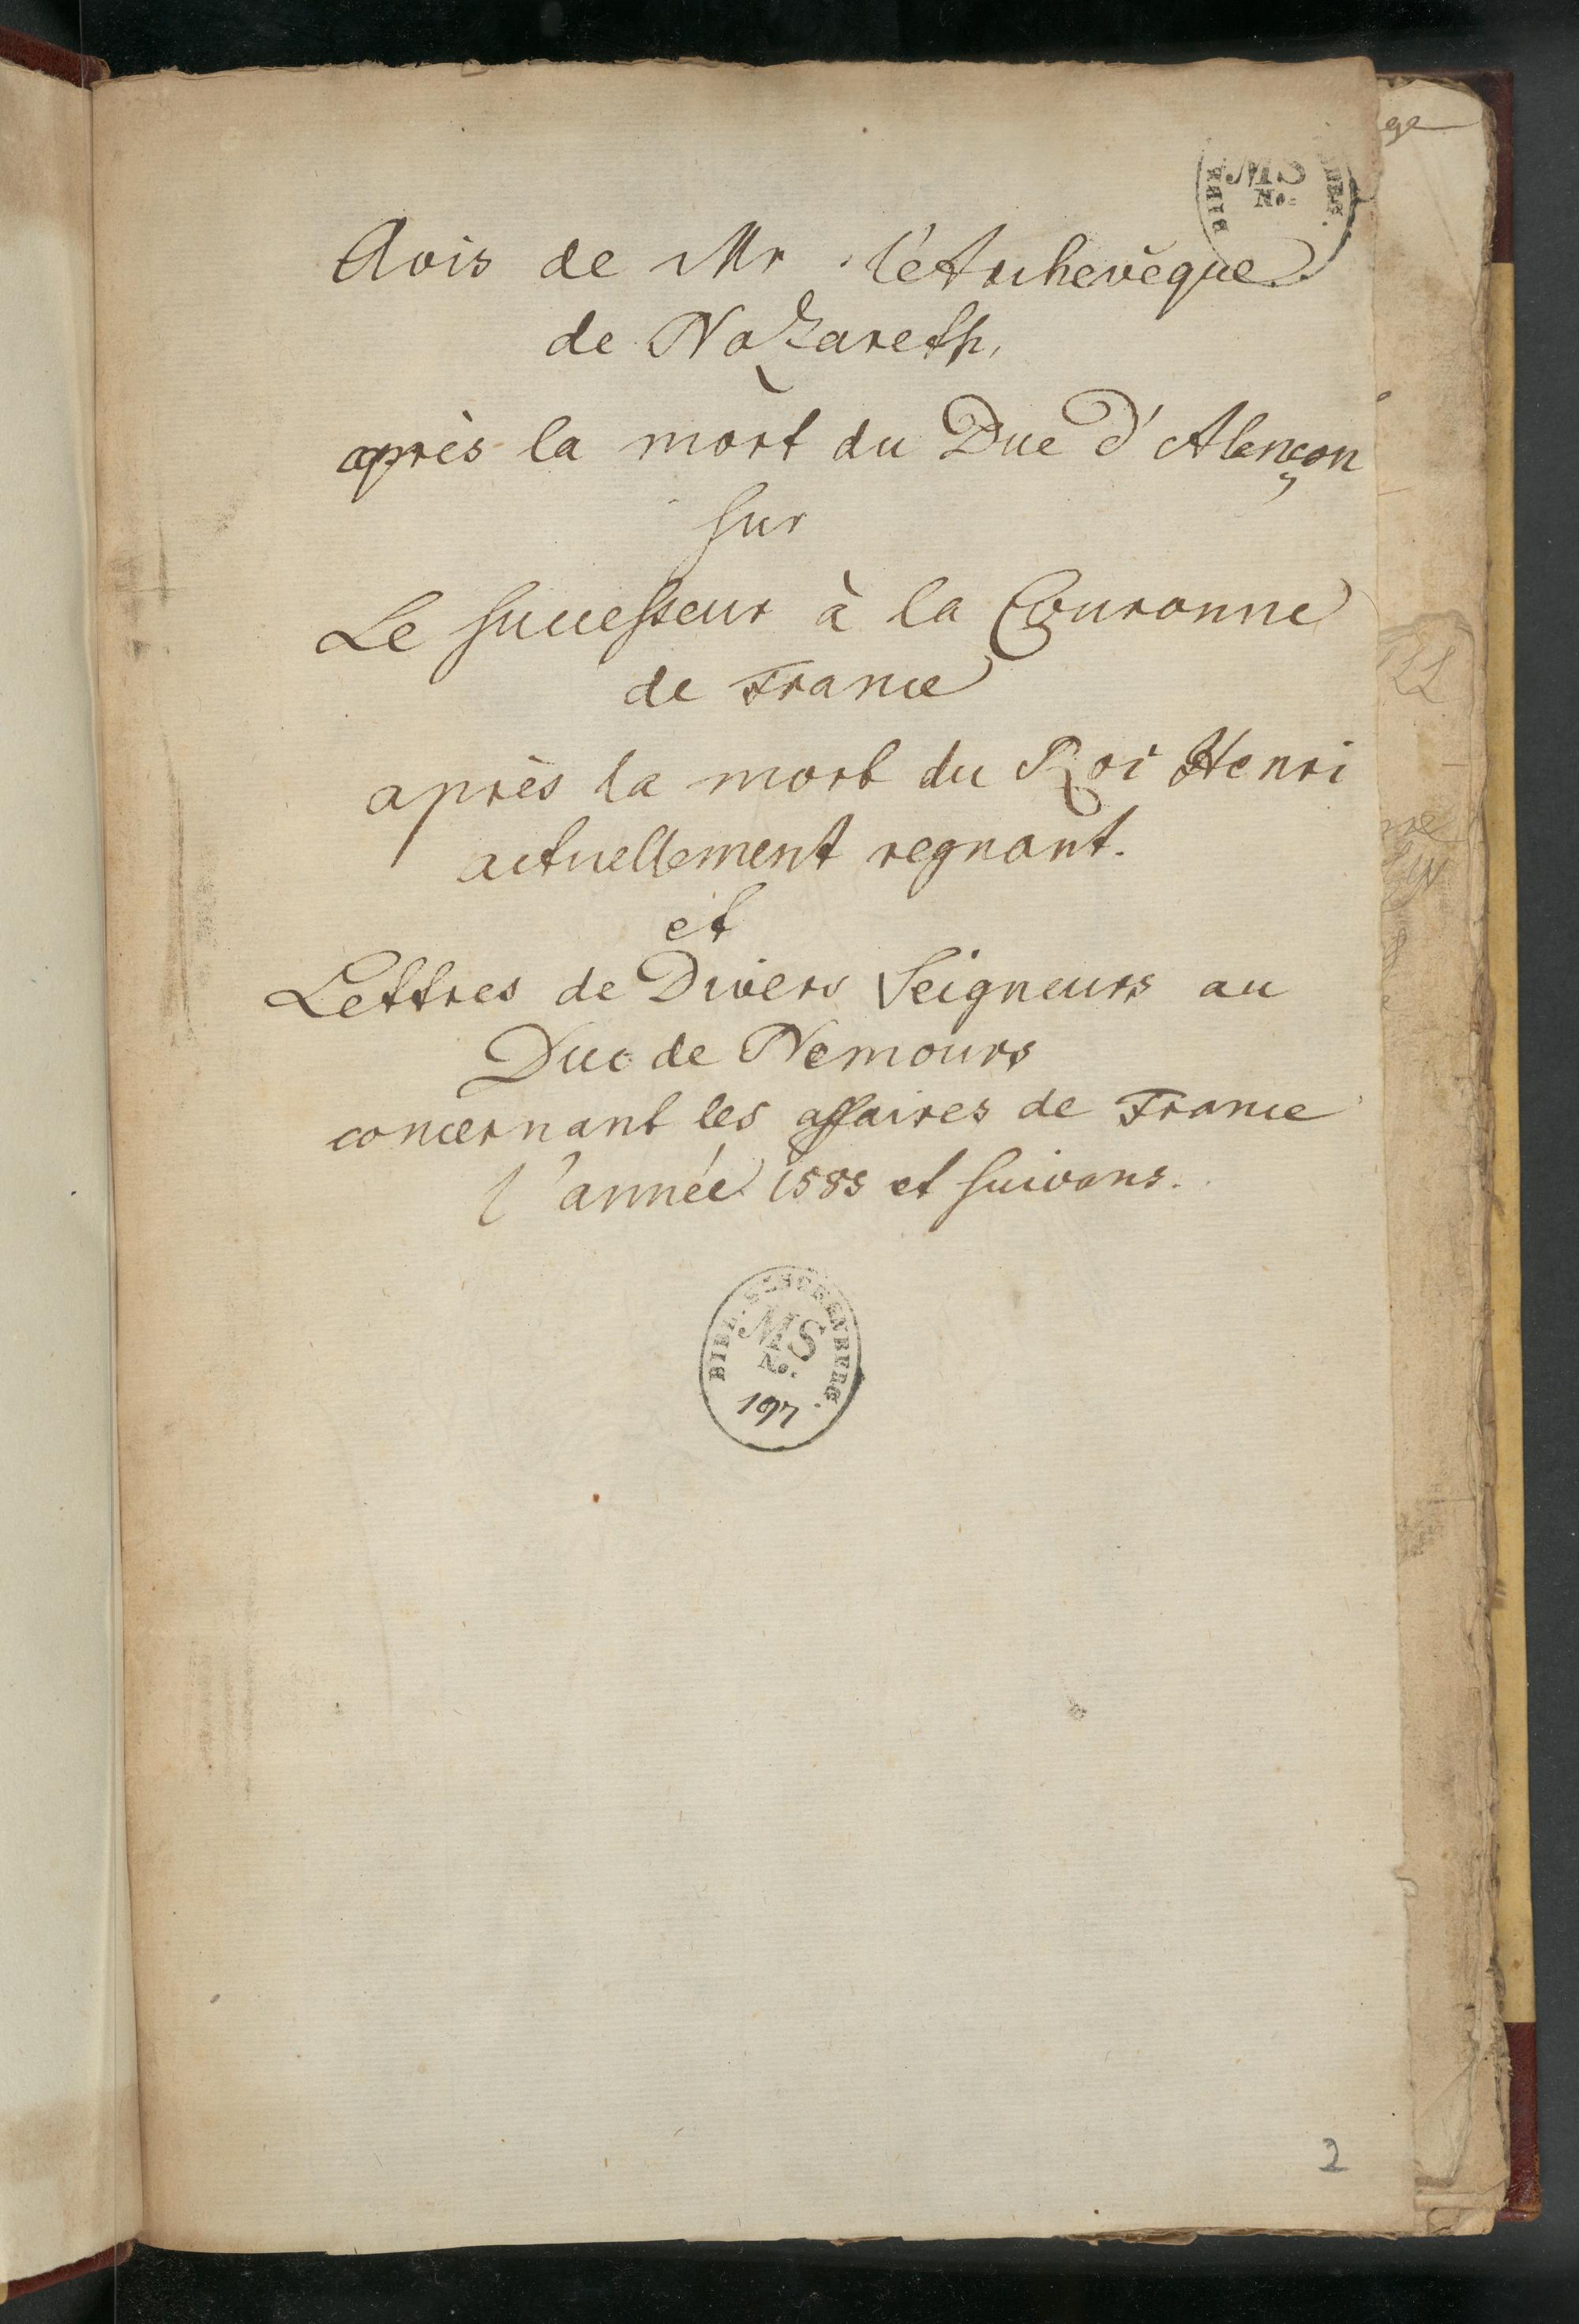 MS
No.
Avis de Mr l'Archevêque
de Nazareth,
après la mort du Duc d'Alençon
sur
Le successeur à la Couronne
de France
après la mort du Roi Henri
actuellement regnant.
et
Lettres de Divers Seigneurs au
Duc de Nemours
concernant les affaires de France
l'année 1585 et suivans.
BIBL. SESCHENBURG.
MS
No.
197
2